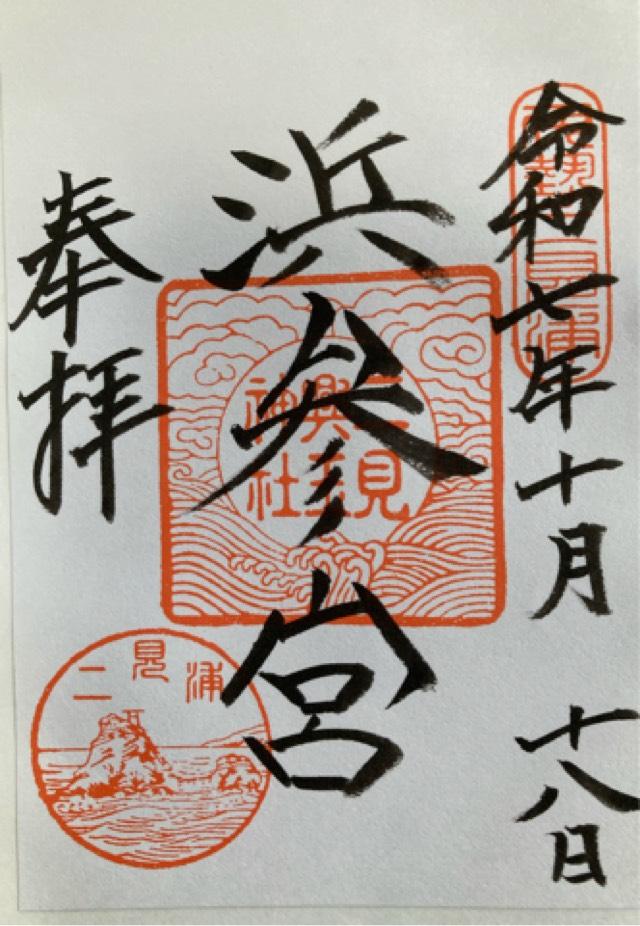 令和七年十月 十八日
伊勢二見浦
浜参宮
二見
興玉
神社
奉拝
二見浦